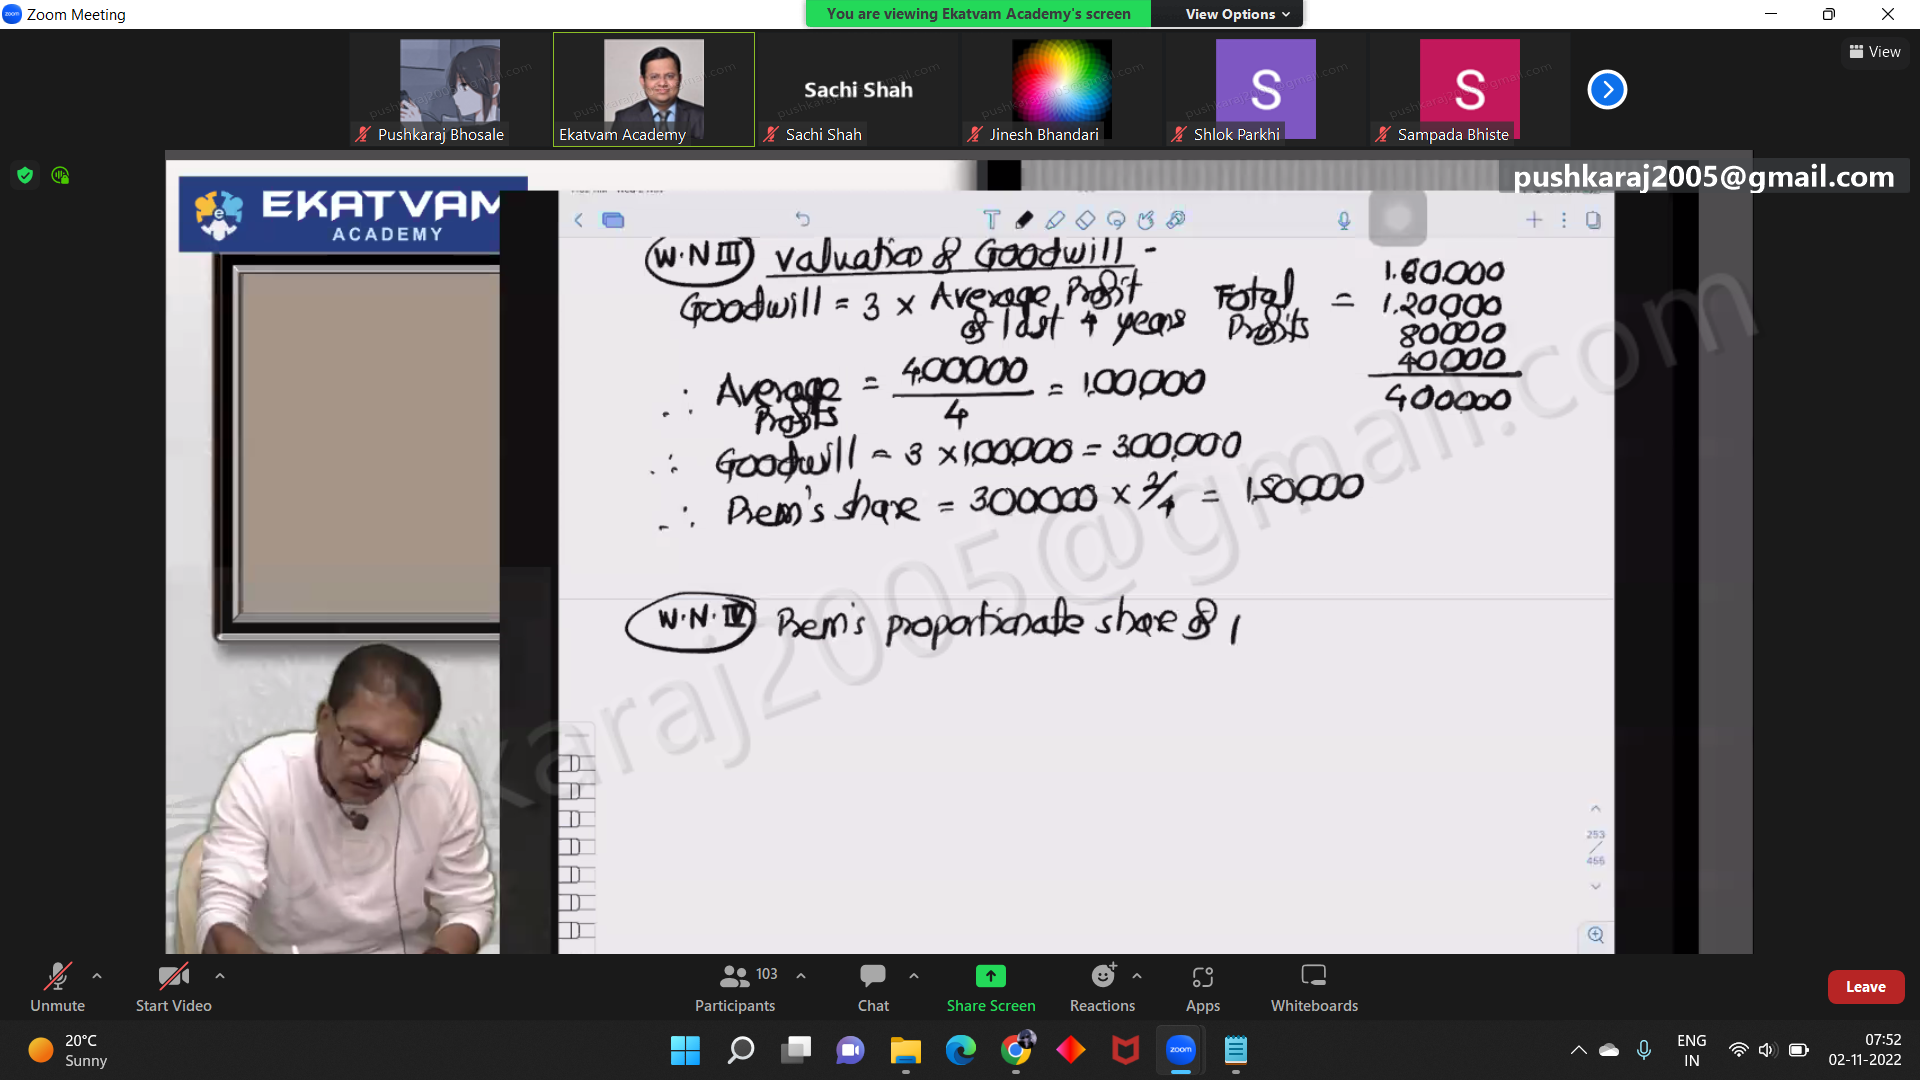 Zoom Meeting
You are viewing Ekatvam Academy's screen
View Options
View
Sachi Shah
S
S
Pushkaraj Bhosale
Ekatvam Academy
Sachi Shah
Jinesh Bhandari
Shlok Parkhi
Sampada Bhiste
pushkaraj2005@gmail.com
EKATVAM
ACADEMY
W.N III Valuation of Goodwill -
Goodwill = 3 × Average Profit
of last 4 years
Total Profits = 1,60,000
1,20,000
80000
40,000
400000
∴ Average Profits = 4,00,000 / 4 = 1,00,000
∴ Goodwill = 3 × 1,00,000 = 3,00,000
∴ Prem's share = 300000 × 2/4 = 1,50,000
W.N. IV Prem's proportionate share of
253
/
455
Unmute
Start Video
103
Participants
Chat
Share Screen
Reactions
Apps
Whiteboards
Leave
20°C
Sunny
zoom
ENG
IN
07:52
02-11-2022